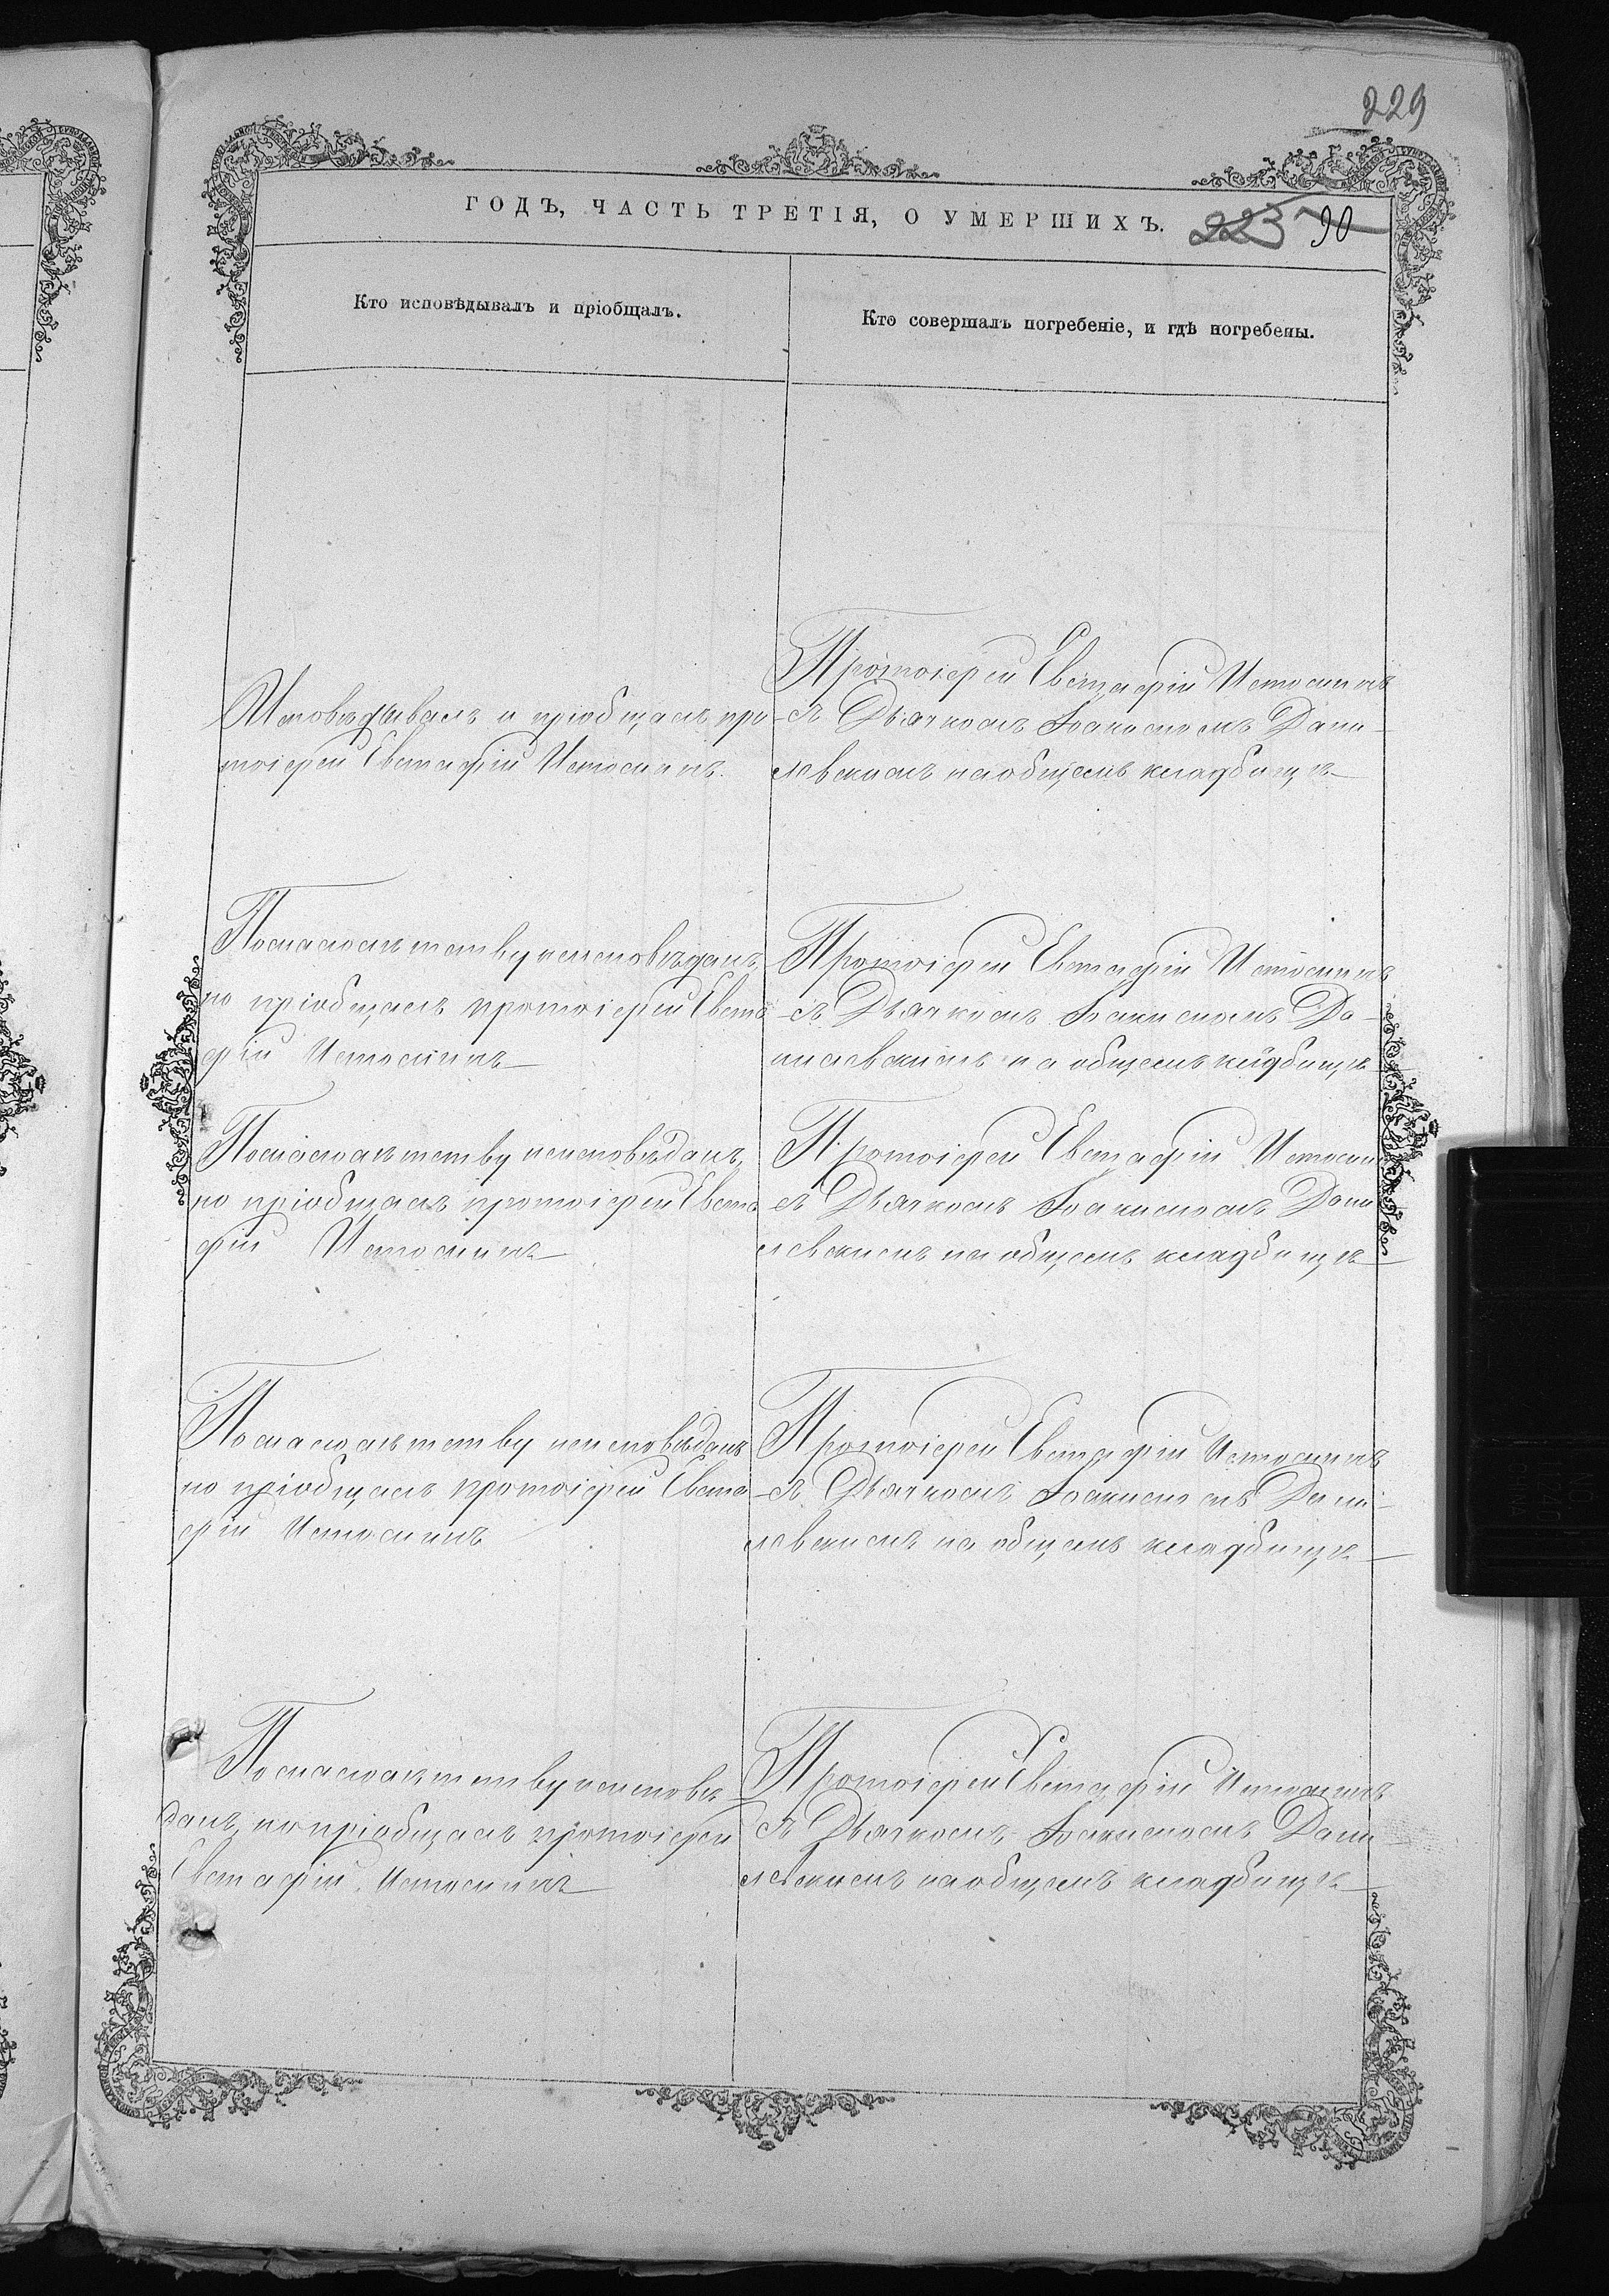 229
ГОДЪ, ЧАСТЬ ТРЕТІЯ, О УМЕРШИХЪ.
223 90
Кто исповѣдывалъ и пріобщалъ.
Кто совершалъ погребеніе, и гдѣ погребены.
Исповѣдывалъ и пріобщалъ про
тоіерей Евстафій Истоминъ.
Протоіерей Евстафій Истоминъ
съ Дьячкомъ Іоакимомъ Дани-
левскимъ на общемъ кладбищѣ
По малолѣтству неисповѣданъ,
но пріобщалъ протоіерей Евста
фій Истоминъ
Протоіерей Евстафій Истоминъ
съ Дьячкомъ Іоакимомъ Да-
нилевскимъ на общемъ кладбищѣ
По малолѣтству неисповѣданъ,
но пріобщалъ протоіерей Евста
фій Истоминъ
Протоіерей Евстафій Истомин
съ Дьячкомъ Іоакимомъ Дани
левскимъ на общемъ кладбищѣ
По малолѣтству неисповѣданъ
но пріобщалъ протоіерей Евста
фій Истоминъ
Протоіерей Евстафій Истоминъ
съ Дьячкомъ Іоакимомъ Дани-
левскимъ на общемъ кладбищѣ
По малолѣтству неисповѣ
данъ, но пріобщалъ протоіерей
Евстафій Истоминъ
Протоіерей Евстафій Истоминъ
съ Дьячкомъ Іоакимомъ Дани
левскимъ на общемъ кладбищѣ